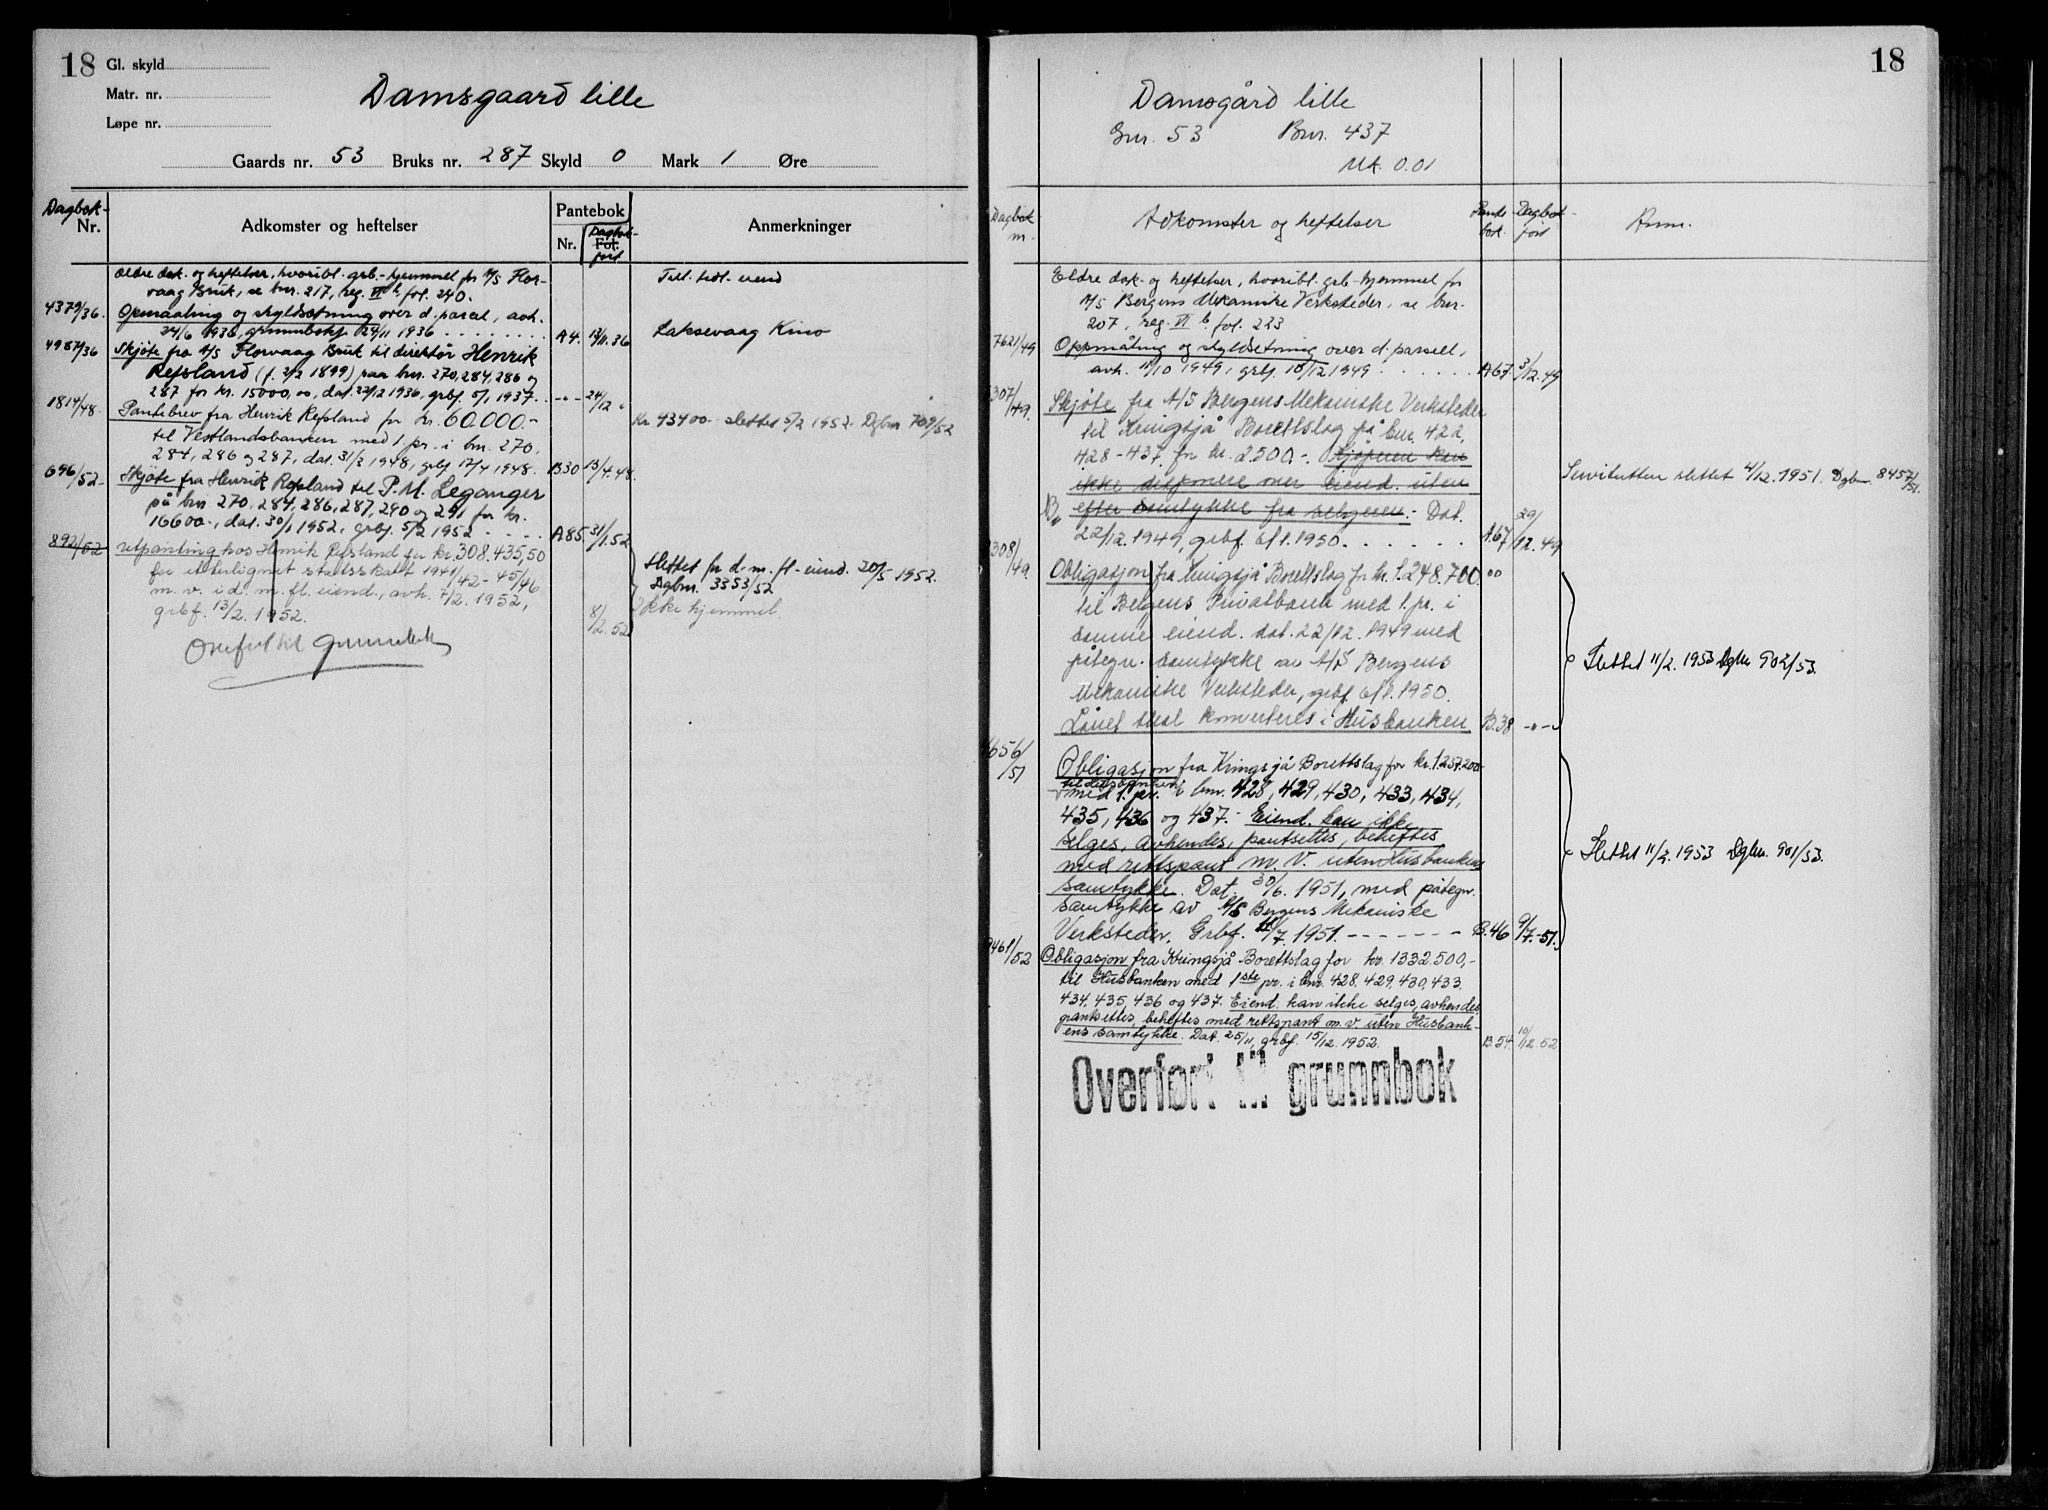 18
Gl. skyld
Matr. nr.
Løpe nr.
Damsgaard lille
Gaards nr. 53 Bruks nr. 287 Skyld 0 Mark 1 Øre
Dagbok-
Nr.
Adkomster og heftelser
Pantebok
Nr.
Fol.
Dagbok-
ført
Anmerkninger
Eldre dok. og heftelser, hvoribl. grb.-hjemmel for A/S Flor-
vaag Bruk, se bnr. 217, reg. VI b fol. 240.
Till. tidl. eiend
4379/36. Opmaaling og skyldsetning over d. parsel, avh.
24/6 1936, grunnboksf. 24/11 1936 A4. 13/11.36
Laksevaag Kino
4987/36 Skjøte fra A/S Florvaag Bruk til direktør Henrik
Refsland (f. 2/2 1899) paa bnr. 270, 284, 286 og
287 for kr. 15000,00, dat. 22/12 1936, grbf. 5/1 1937. -"- 24/12 "
1814/48. Pantebrev fra Henrik Refsland for kr. 60.000.-
til Vestlandsbanken med 1. pr. i bnr. 270,
284, 286 og 287, dat. 31/3 1948, grbf 17/4 1948. B30 13/4.48.
Kr 43400.- slettet 5/2 1952. Dgbnr 709/52
696/52- Skjøte fra Henrik Refsland til P. M. Leganger
på bnr. 270, 284, 286, 287, 290 og 291 for kr.
16600.-, dat. 30/1 1952, grbf. 5/2 1952 A85 31/1.52
892/52 Utpanting hos Henrik Refsland for kr. 308.435,50
for etterlignet statsskatt 1941/42 - 45/46
m. v. i d. m. fl. eiend., avh. 7/2. 1952,
grbf. 13/2. 1952. 8/2.52
Slettet for d. m. fl. eiend. 20/5 1952.
Dgbnr. 3353/52
Ikke hjemmel.
Overført til grunnbok
18
Damsgård lille
Gnr. 53 Bnr. 437
Mk. 0.01
Dagbok
nr.
Adkomster og heftelser
Pante
bok.
Dagbok-
ført
Anm.
Eldre dok. og heftelser, hvoribl. grb-hjemmel for
A/S Bergens Mekaniske Verksteder, se bnr.
207, reg. VI b. fol. 223
7621/49 Oppmåling og skyldsetning over d. parsell,
avh. 11/10 1949, grbf. 10/12 1949 A67 3/12.49
307/49. Skjøte fra A/S Bergens Mekaniske Verksteder
til Kringsjå Borettslag på bnr. 422,
428-437 for kr. 2500.-. Kjøperen kan
ikke disponere over eiend. uten
efter samtykke fra selgeren.- Dat.
22/12. 1949, grbf. 6/1. 1950. A67 29/12.49
Servitutten slettet 4/12. 1951. Dgbnr. 8457/51.
308/49. Obligasjon fra Kringsjå Borettslag for kr. 1.248.700.00
til Bergens Privatbank med 1. pr. i
samme eiend. dat. 22/12. 1949 med
påtegn. samtykke av A/S Bergens
Mekaniske Verksteder, grbf. 6/1. 1950.
Lånet skal konverteres i Husbanken B.38 -"-
Slettet 11/2. 1953 Dgbnr 902/53.
4656/51 Obligasjon fra Kringsjå Borettslag for kr. 1.257.200-
med 1. pr. i bnr. 428, 429, 430, 433, 434,
435, 436 og 437.- Eiend. kan ikke
selges, avhendes, pantsettes, beheftes
med rettspant m. v. uten Husbankens
samtykke. Dat. 30/6. 1951, med påtegn.
samtykke av A/S Bergens Mekaniske
Verksteder. Grbf. 11/7. 1951. B.46 9/7.-51.
Slettet 11/2. 1953 Dgbnr. 901/53.
9461/52 Obligasjon fra Kringsjå Borettslag for kr. 1332.500,-
til Husbanken med 1ste pr. i bnr. 428, 429, 430, 433,
434, 435, 436 og 437. Eiend. kan ikke selges, avhendes,
pantsettes, beheftes med rettspant m.v. uten Husbank-
ens samtykke. Dat. 25/11, grbf. 15/12. 1952. B.54 10/12.52
Overført til grunnbok